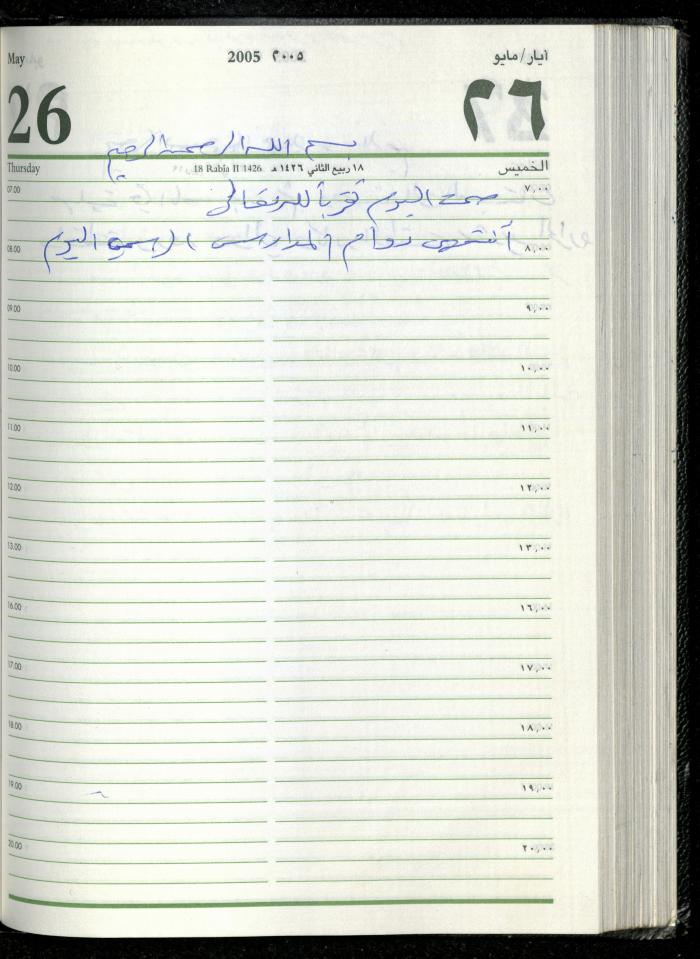 May 2005 ٢٠٠٥ أيار/مايو
26 ٢٦
بسم الله الرحمن الرحيم
Thursday 18 Rabia II 1426 ١٨ ربيع الثاني ١٤٢٦ هـ الخميس
07.00 ٧,٠٠
صمت اليوم قرباً لله تعالى
08.00 ٨,٠٠
أنتهى دوام المدارس الرسمي اليوم
09.00 ٩,٠٠
10.00 ١٠,٠٠
11.00 ١١,٠٠
12.00 ١٢,٠٠
13.00 ١٣,٠٠
16.00 ١٦,٠٠
17.00 ١٧,٠٠
18.00 ١٨,٠٠
19.00 ١٩,٠٠
20.00 ٢٠,٠٠